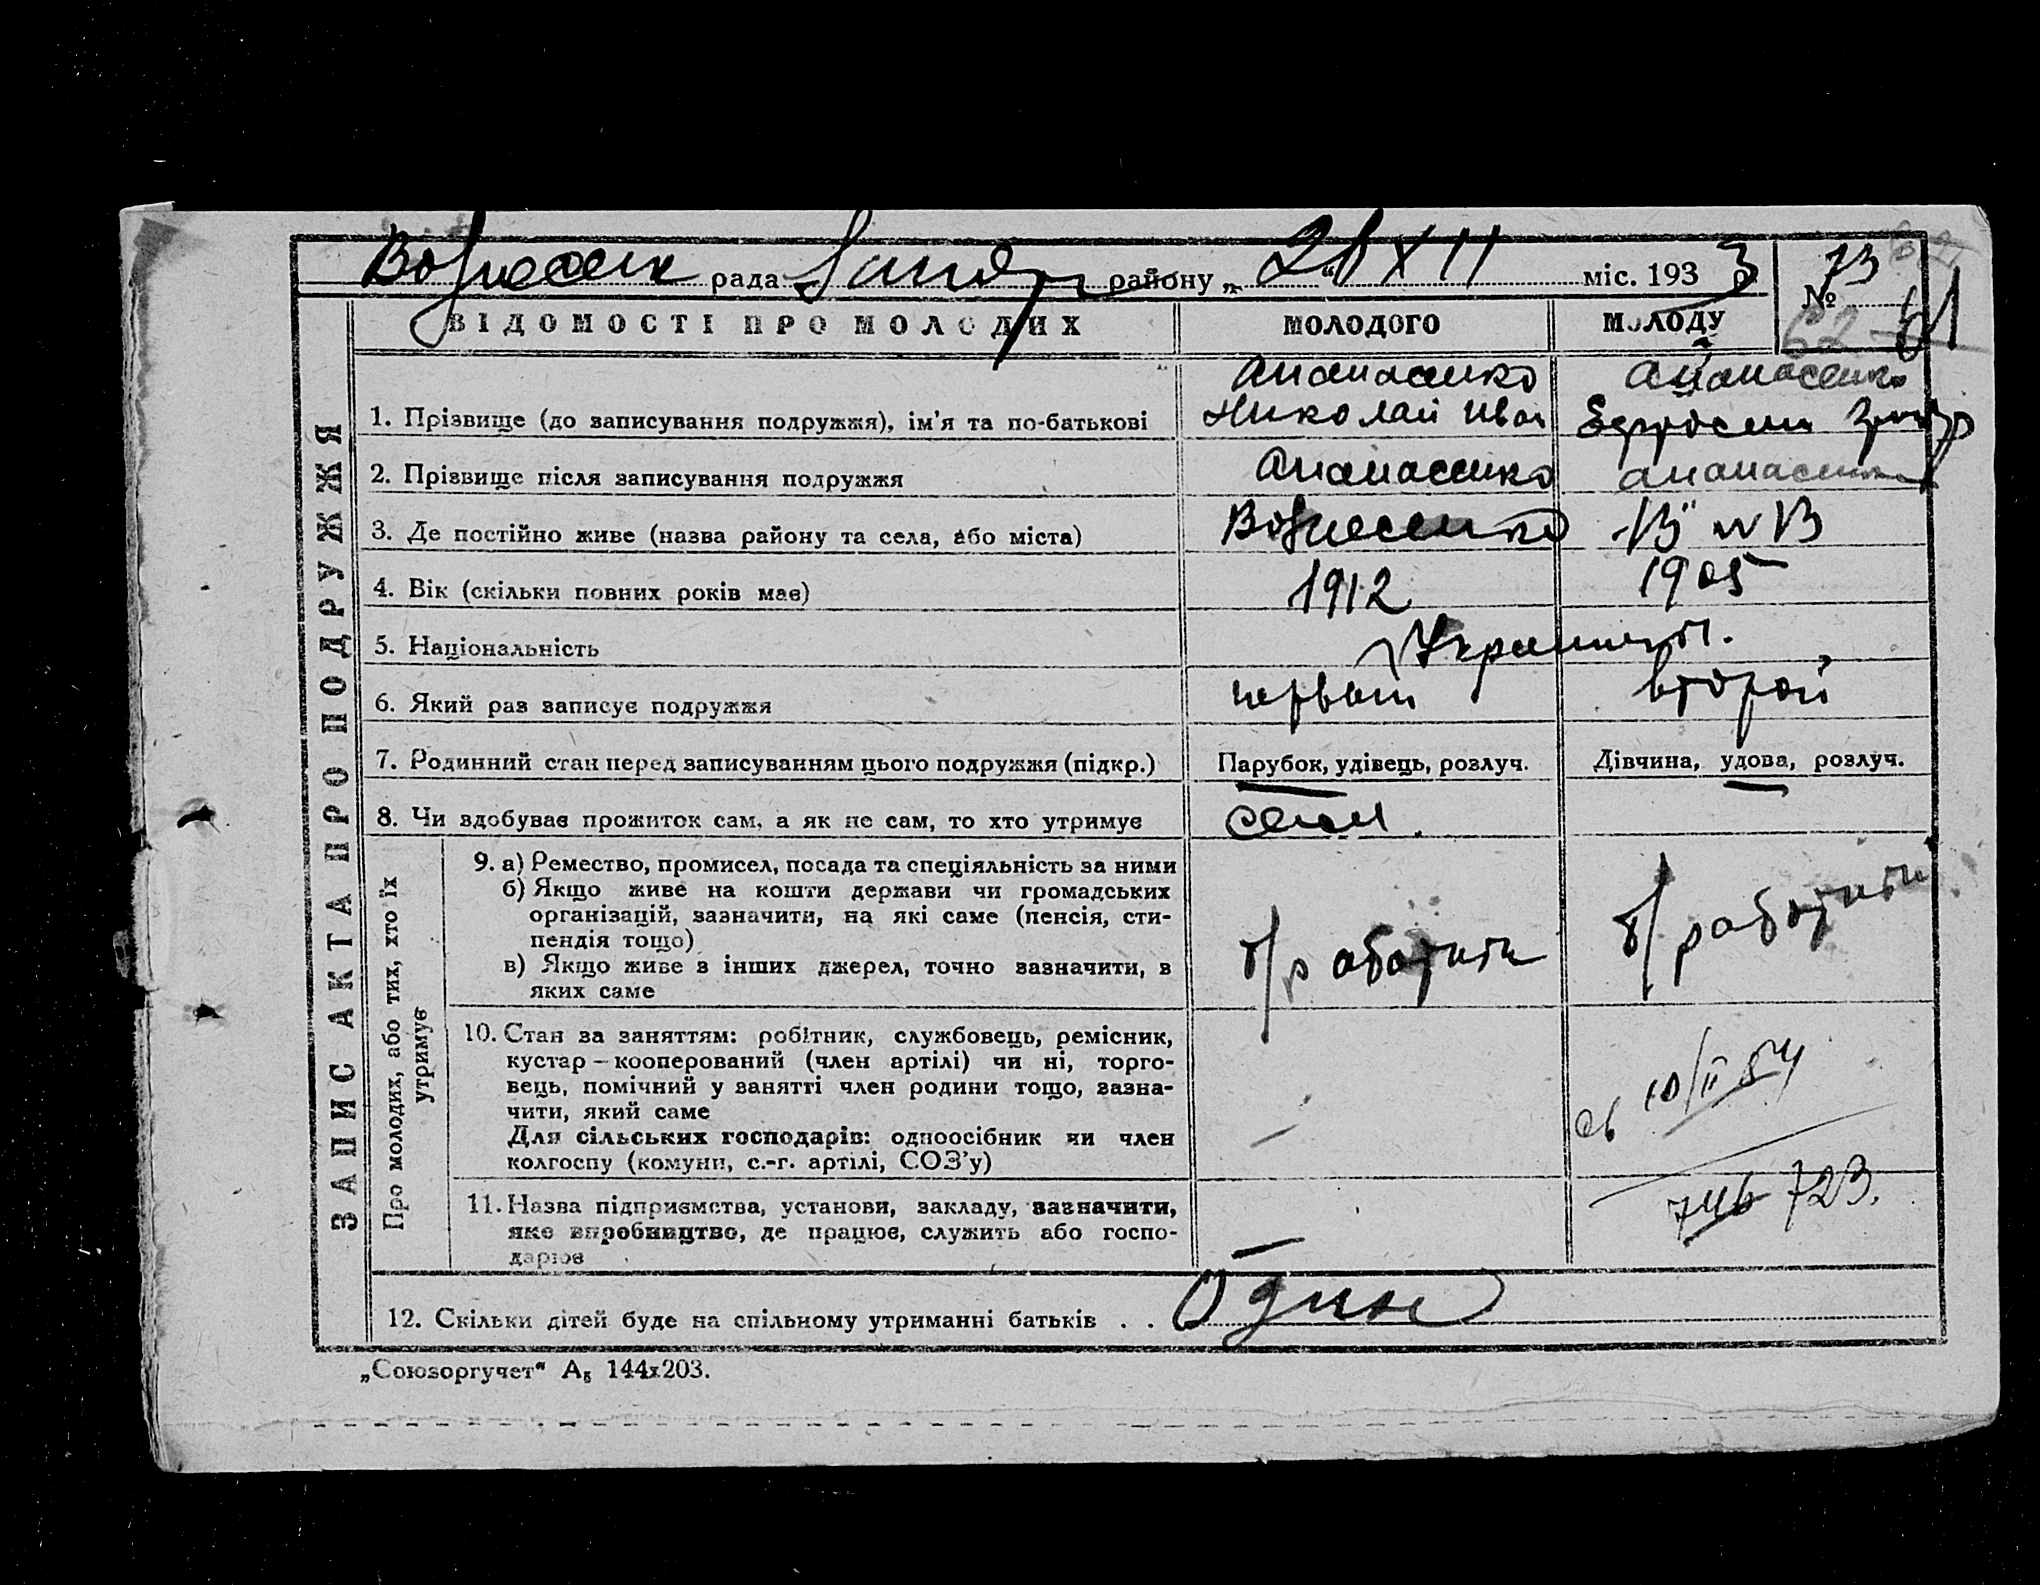 Вознесенск рада района „28“ XII міс. 1933
№ 73
ВІДОМОСТІ ПРО МОЛОДИХ МОЛОДОГО МОЛОДУ
ЗАПИС АКТА ПРО ПОДРУЖЖЯ
Апанасенко Апанасенко
1. Прізвище (до записування подружжя), ім'я та по-батькові Николай Иван Ефросин
2. Прізвище після записування подружжя Апанасенко Апанасенко
3. Де постійно живе (назва району та села, або міста) Вознесенко
4. Вік (скільки повних років має) 1912 1905
5. Національність
6. Який раз записує подружжя первый второй
7. Родинний стан перед записуванням цього подружжя (підкр.) Парубок, удівець, розлуч. Дівчина, удова, розлуч.
8. Чи здобуває прожиток сам, а як не сам, то хто утримує сам.
Про молодих, або тих, хто їх
утримує
9. а) Ремество, промисел, посада та спеціяльність за ними
б) Якщо живе на кошти держави чи громадських
організацій, зазначити, на які саме (пенсія, сти-
пендія тощо)
в) Якщо живе з інших джерел, точно зазначити, з
яких саме
10. Стан за заняттям: робітник, службовець, ремісник,
кустар – кооперований (член артілі) чи ні, торго-
вець, помічний у занятті член родини тощо, зазна-
чити, який саме
Для сільських господарів: одноосібник чи член
колгоспу (комуни, с.-г. артілі, СОЗ'у)
10/II 54
11. Назва підприємства, установи, закладу, зазначити,
яке виробництво, де працює, служить або госпо-
дарює
746 723.
12. Скільки дітей буде на спільному утриманні батьків . . Один
„Союзоргучет“ А5 144х203.